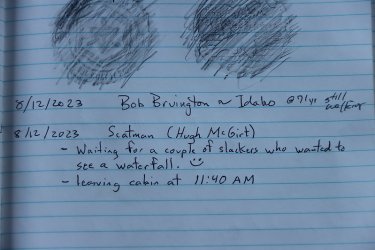 8/12/2023 Bob Bruington ~ Idaho @ 71 yr still walking
8/12/2023 Scatman (Hugh McGirt)
- Waiting for a couple of slackers who wanted to
see a waterfall. ☺
- leaving cabin at 11:40 AM